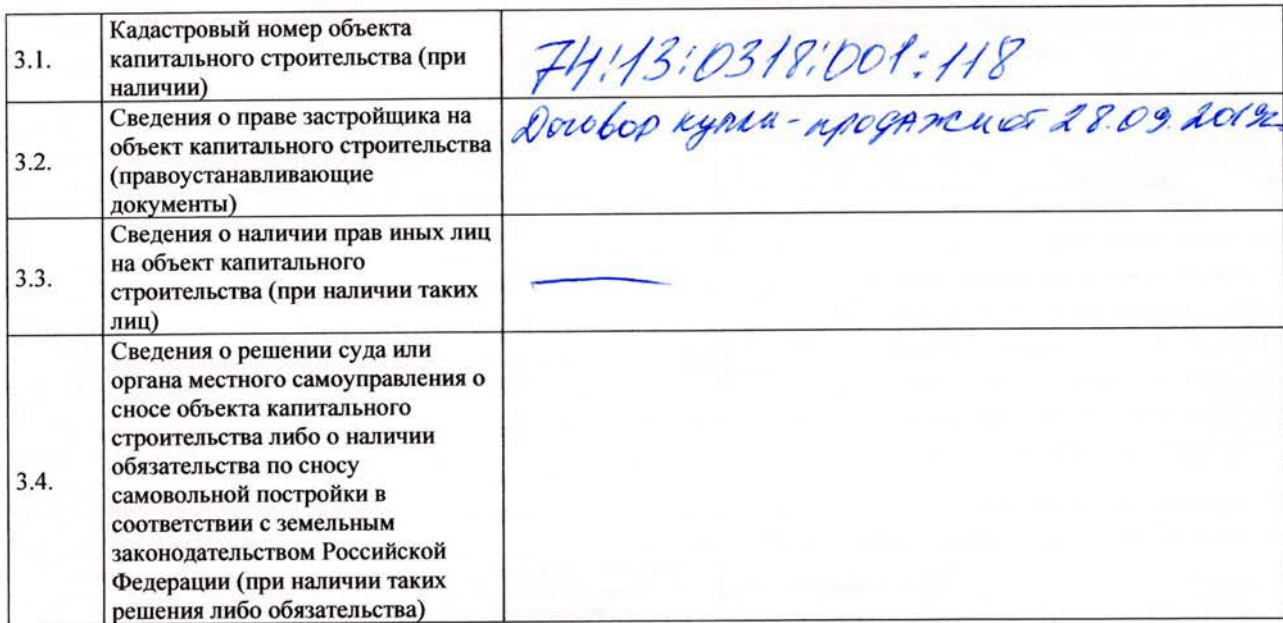 3.1.
Кадастровый номер объекта
капитального строительства (при
наличии)
74:13:0318:001:118
3.2.
Сведения о праве застройщика на
объект капитального строительства
(правоустанавливающие
документы)
Договор купли-продажи от 28.09.2019г.
3.3.
Сведения о наличии прав иных лиц
на объект капитального
строительства (при наличии таких
лиц)
—
3.4.
Сведения о решении суда или
органа местного самоуправления о
сносе объекта капитального
строительства либо о наличии
обязательства по сносу
самовольной постройки в
соответствии с земельным
законодательством Российской
Федерации (при наличии таких
решения либо обязательства)